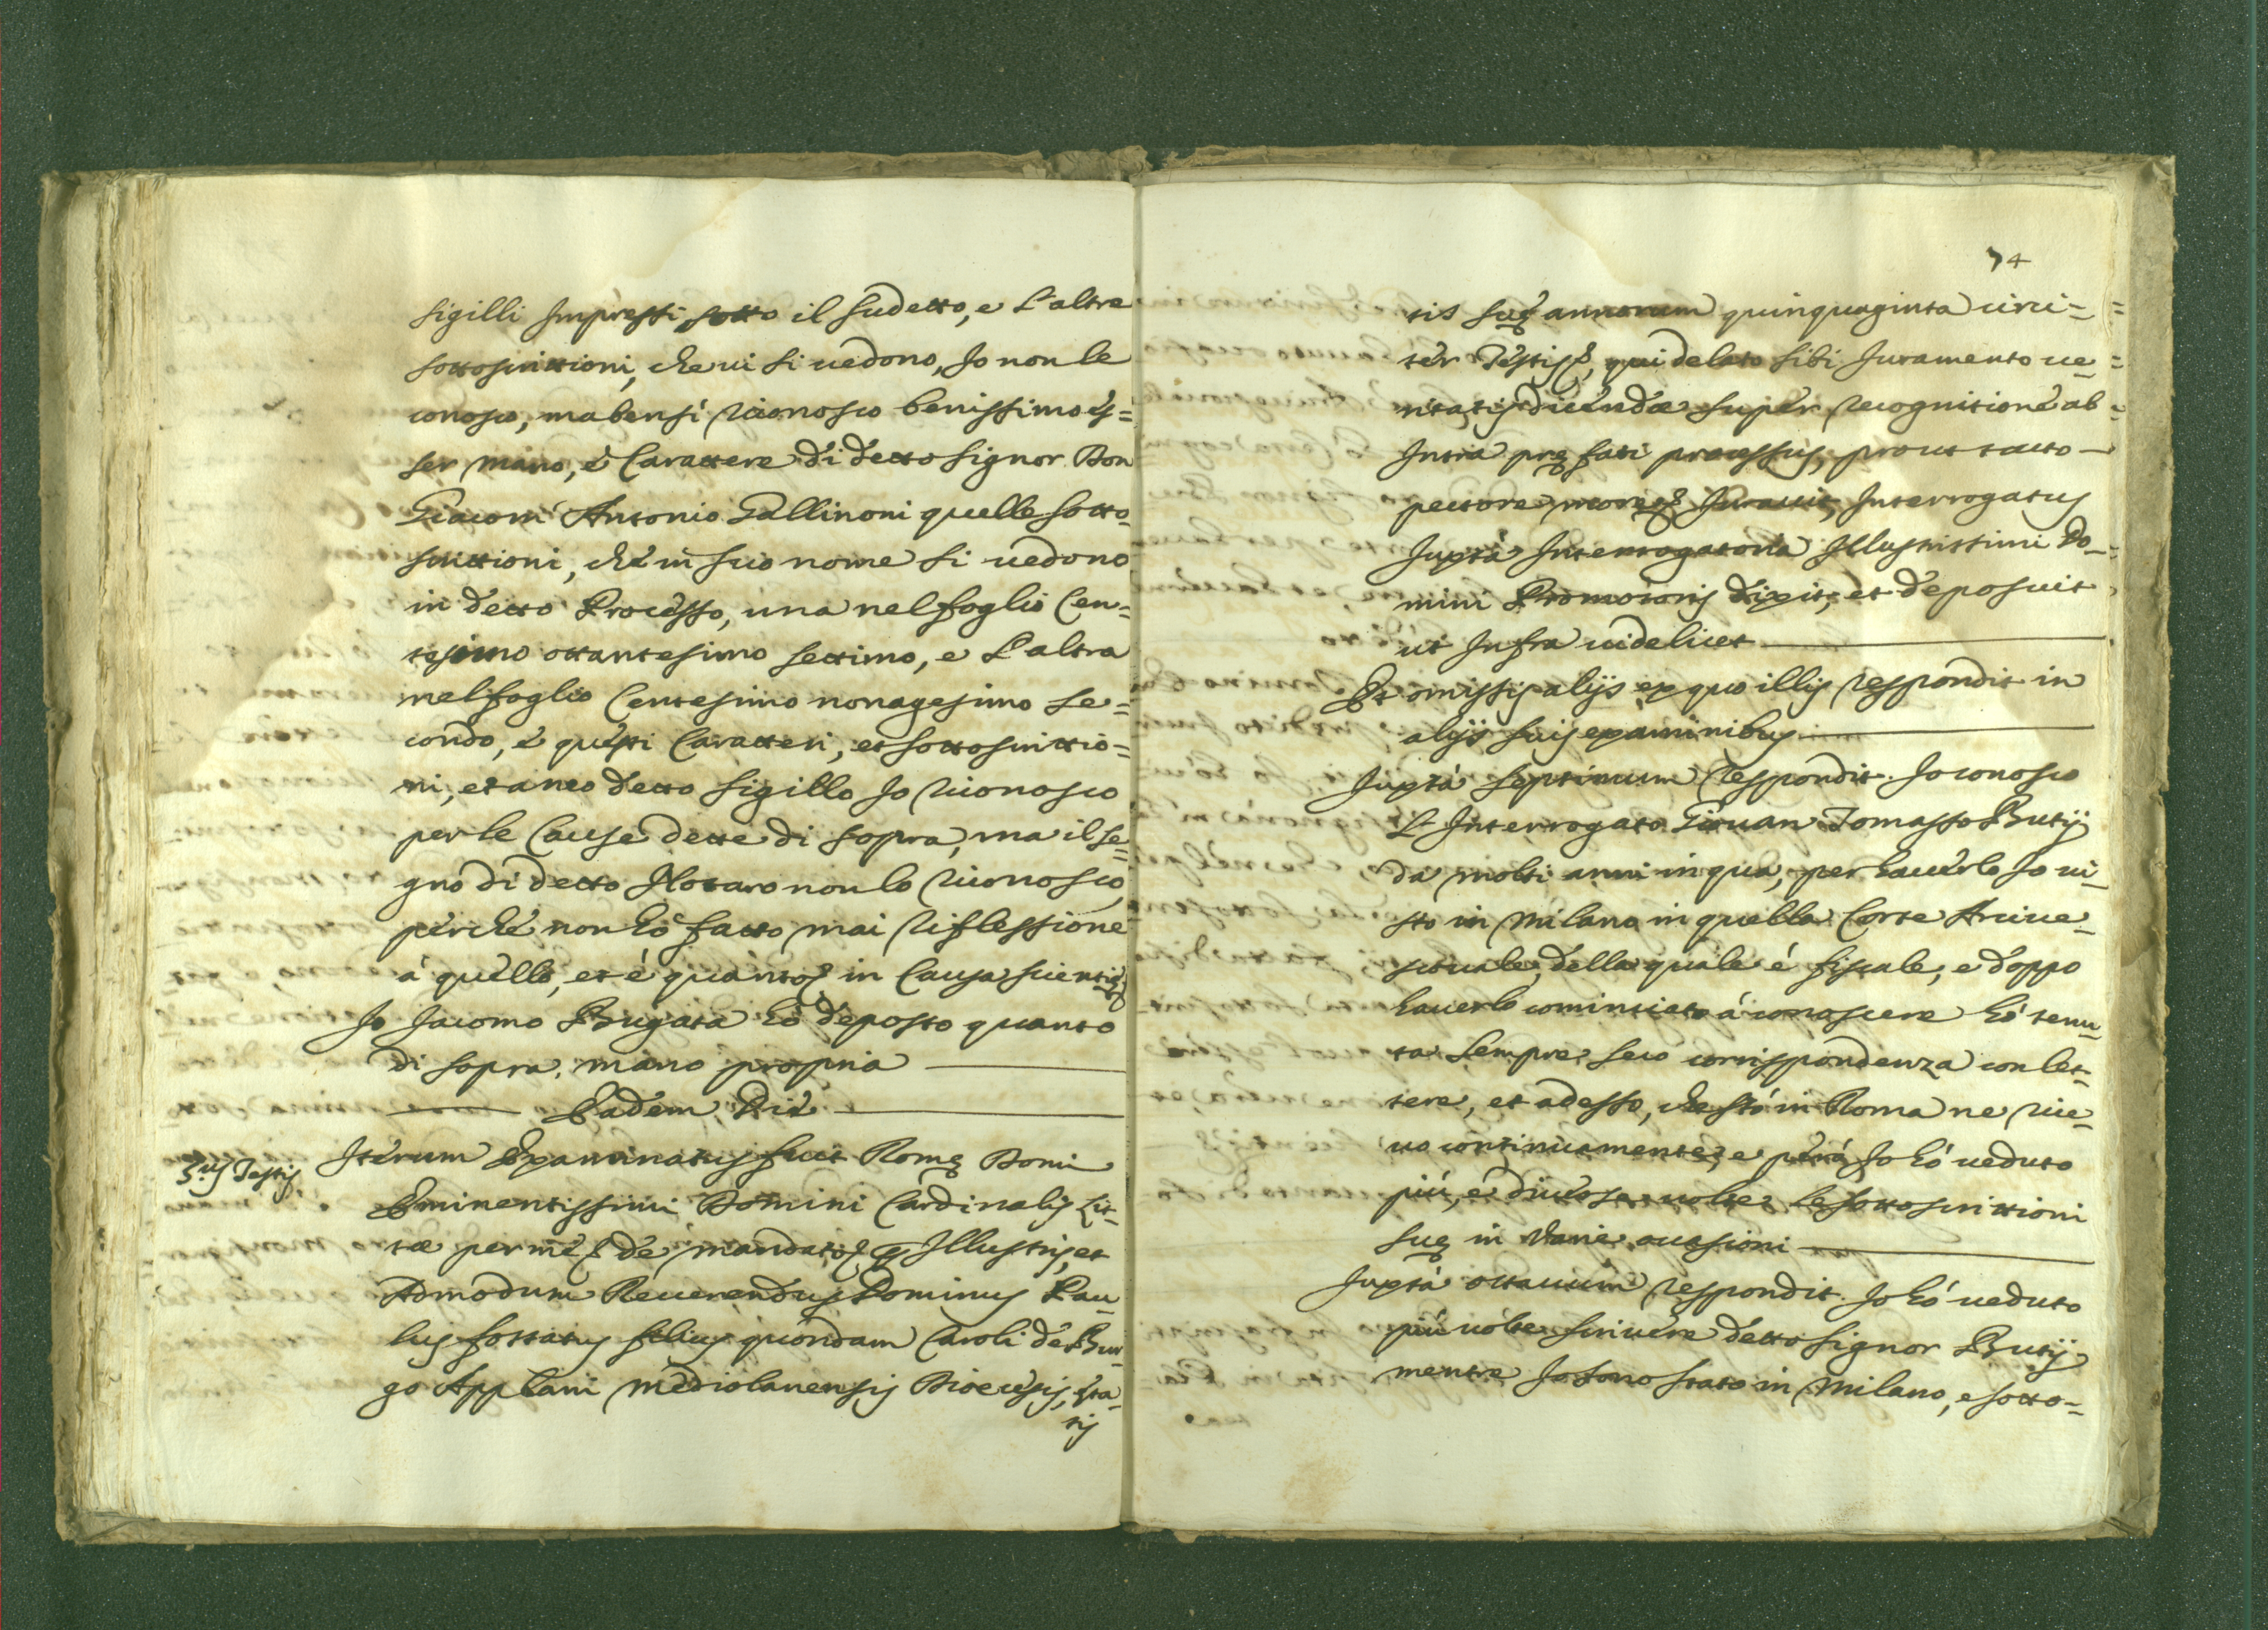 sigilli Impressi sotto il sudetto, e l'altre
sottoscrittioni, che vi si uedono, Io non le
conosco, ma bensì riconosco benissimo es=
ser mano, è Carattere di detto Signor Don
Giacom' Antonio Gallinoni quelle sotto=
scrittioni, che in suo nome si uedono
in detto Processo, una nel foglio Cen=
tesimo ottantesimo settimo, e l'altra
nel foglio Centesimo nonagesimo se=
condo, e questi Caratteri, et sottoscrittio=
ni, et anco detto sigillo Io riconosco
per le Cause dette di sopra, ma il se=
gno di detto Notaro non lo riconosco,
perche non hò fatto mai riflessione
à quello, et è quanto in Causa scientię
Io Jacomo Bugata hò deposto quanto
di sopra, mano propria
Eadem Die
3.us Testis
Iterum Examinatus fuit Romę Domi
Eminentissimi Domini Cardinalis Lit=
tæ per me de mandato Illustris, et
Admodum Reuerendus Dominus Pau=
lus fossatus filius quondam Caroli de Bur=
go Applani mediolanensis Diocesis, ęta=
tis
74
tis suę annorum quinquaginta circi=
ter Testis, qui delato sibi Juramento ue=
ritatis dicendæ super recognitione ab=
Intra pręfati processus, prout tacto
pectore more Jurauit, Interrogatus
Juxta Interrogatoria Illustrissimi Do=
mini Promotoris dixit, et deposuit
ut Infra uidelicet
Et omissis alijs ex quo illis respondit in
alijs suis examinibus
Juxtà septimum respondit. Io conosco
l'Interrogato Giouan Tomasso Butij
da molti anni in qua, per hauerlo Io ui=
sto in Milano in quella Corte Arciue=
scouale, della quale è fiscale, e doppo
hauerlo cominciato à conoscere hò tenu=
ta sempre seco corrispondenza con let=
tere, et adesso, che stò in Roma ne rice=
uo continuamente, e però Io hò ueduto
più, e diuerse uolte le sottoscrittioni
suę in varie occasioni
Juxtà ottauum respondit. Io hò ueduto
più uolte scriuere detto Signor Butij
mentre Io sono stato in Milano, e sotto=